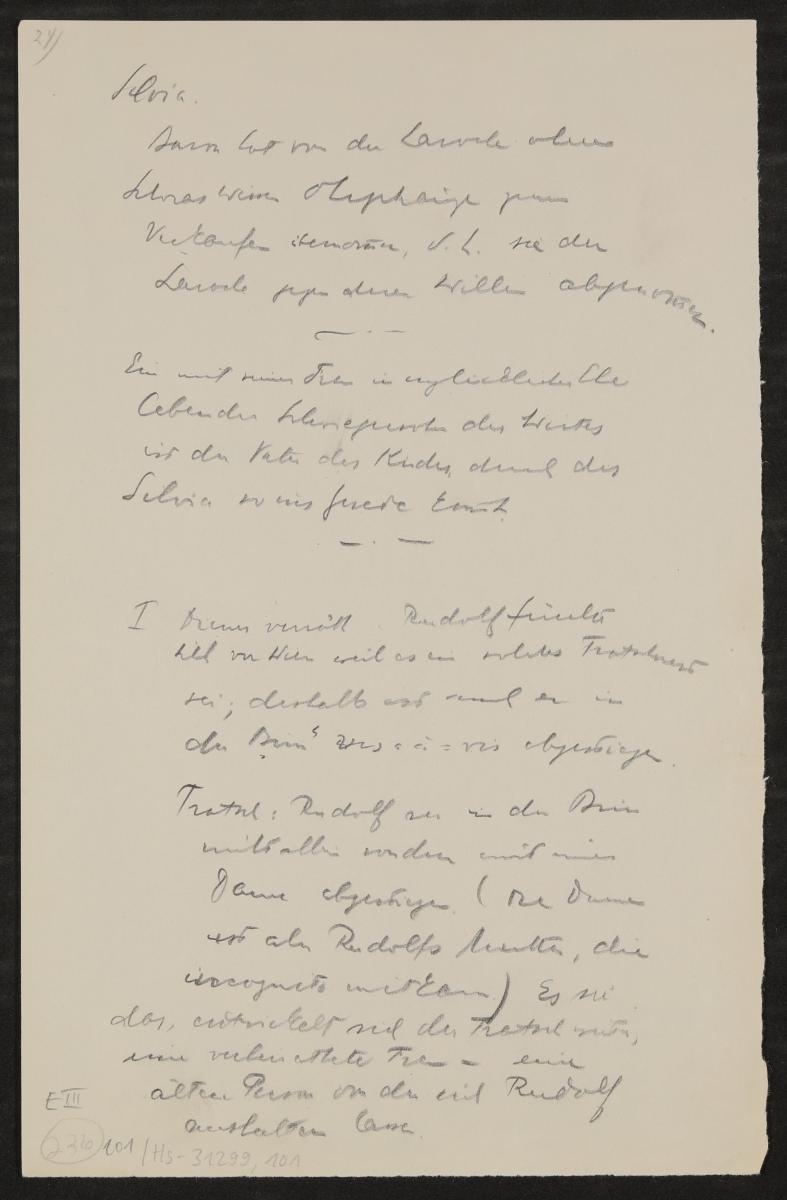 24)
Silvia.
Baron hat von der Laroche ohne
Silvias Wissen Ohrgehänge zum
Verkaufen genommen, d. h. sie der
Laroche gegen deren Willen abgenommen.
Ein mit seiner Frau in unglücklicher Ehe
lebender Schwiegersohn des Wirtes
ist der Vater des Kindes, durch das
Silvia
I Diener verräth. Rudolf fürchte
sich vor Wien weil es ein solches Tratschnest
sei; deshalb ist auch er in
der vis-à-vis abgestiegen.
Tratsch: Rudolf sei in der
nicht allein sondern mit einer
Dame abgestiegen (die Dame
ist aber Rudolfs Mutter, die
incognito mitkam) Es sei
das, entwickelt sich der Tratsch weiter,
eine verheirathete Frau – eine
ältere Person von der sich Rudolf
aushalten lasse.
E III
236 101 / Hs-31299, 101